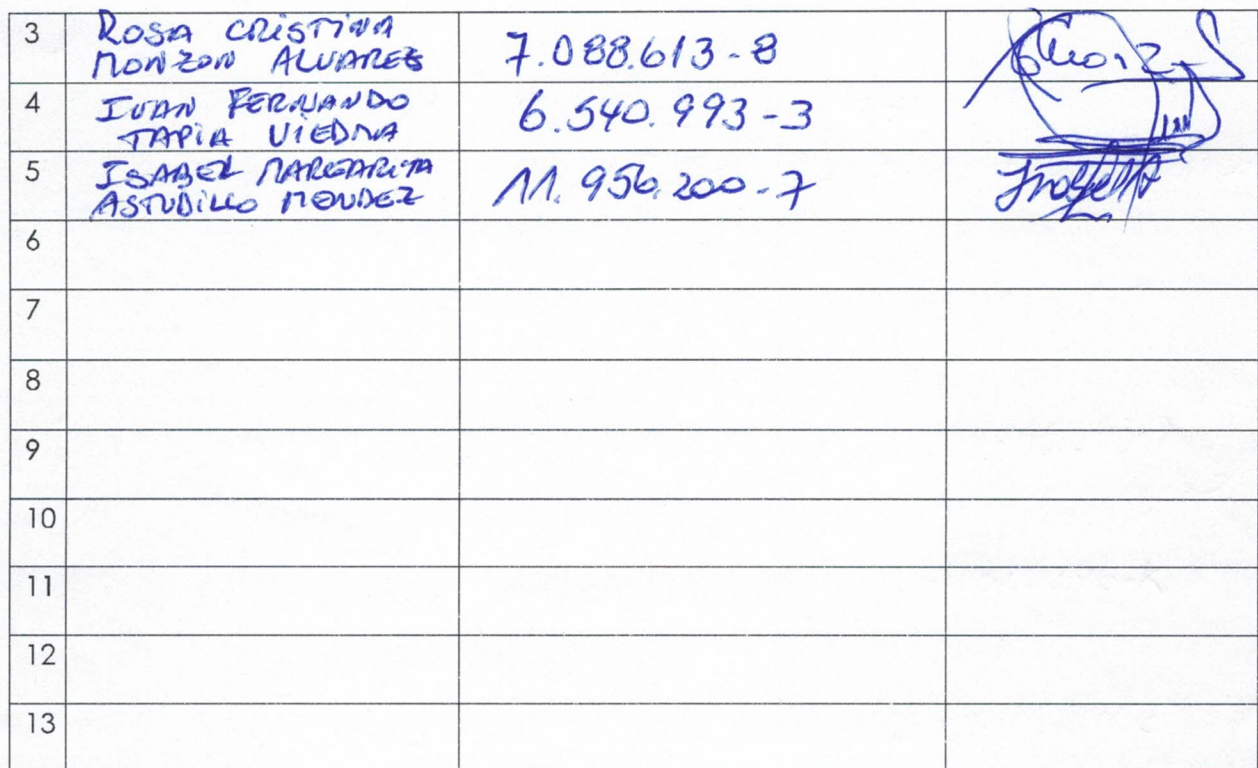 3 ROSA CRISTINA
MONZON ALVAREZ 7.088.613-8
4 IVAN FERNANDO
TAPIA VIEDMA 6.540.993-3
5 ISABEL MARGARITA
ASTUDILLO MENDEZ 11.956.200-7
6
7
8
9
10
11
12
13